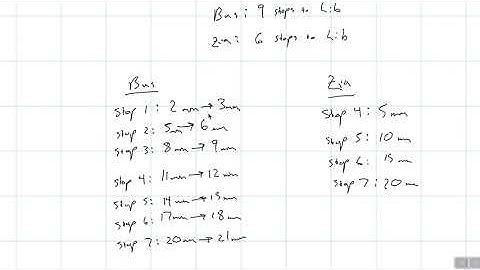 Bus: 9 stops to Lib
Zia: 6 stops to Lib
Bus
Stop 1: 2min → 3min
Stop 2: 5min → 6min
Stop 3: 8min → 9min
Stop 4: 11min → 12min
Stop 5: 14min → 15min
Stop 6: 17min → 18min
Stop 7: 20min → 21min
Zia
Stop 4: 5min
Stop 5: 10min
Stop 6: 15min
Stop 7: 20min